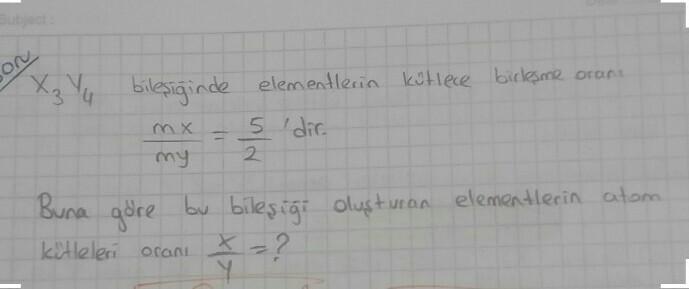 Subject:
SON
X₃Y₄ bileşiğinde elementlerin kütlece birleşme oranı
mx/my = 5/2 'dir.
Buna göre bu bileşiği oluşturan elementlerin atom
kütleleri oranı X/Y = ?